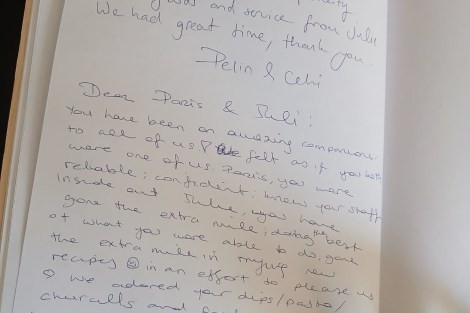 and service from Julie
We had great time, thank you.
Pelin & Celil
Dear Paris & Juli:
You have been an amazing companion
to all of us & felt as if you both
were one of us. Paris, you were
reliable; confident; knew your staff
inside out Julie, you have
gone the extra mile; doing the best
of what you were able to do, gone
the extra mile in trying new
recipes ☺ in an effort to please us
We adored your dips/pasta/